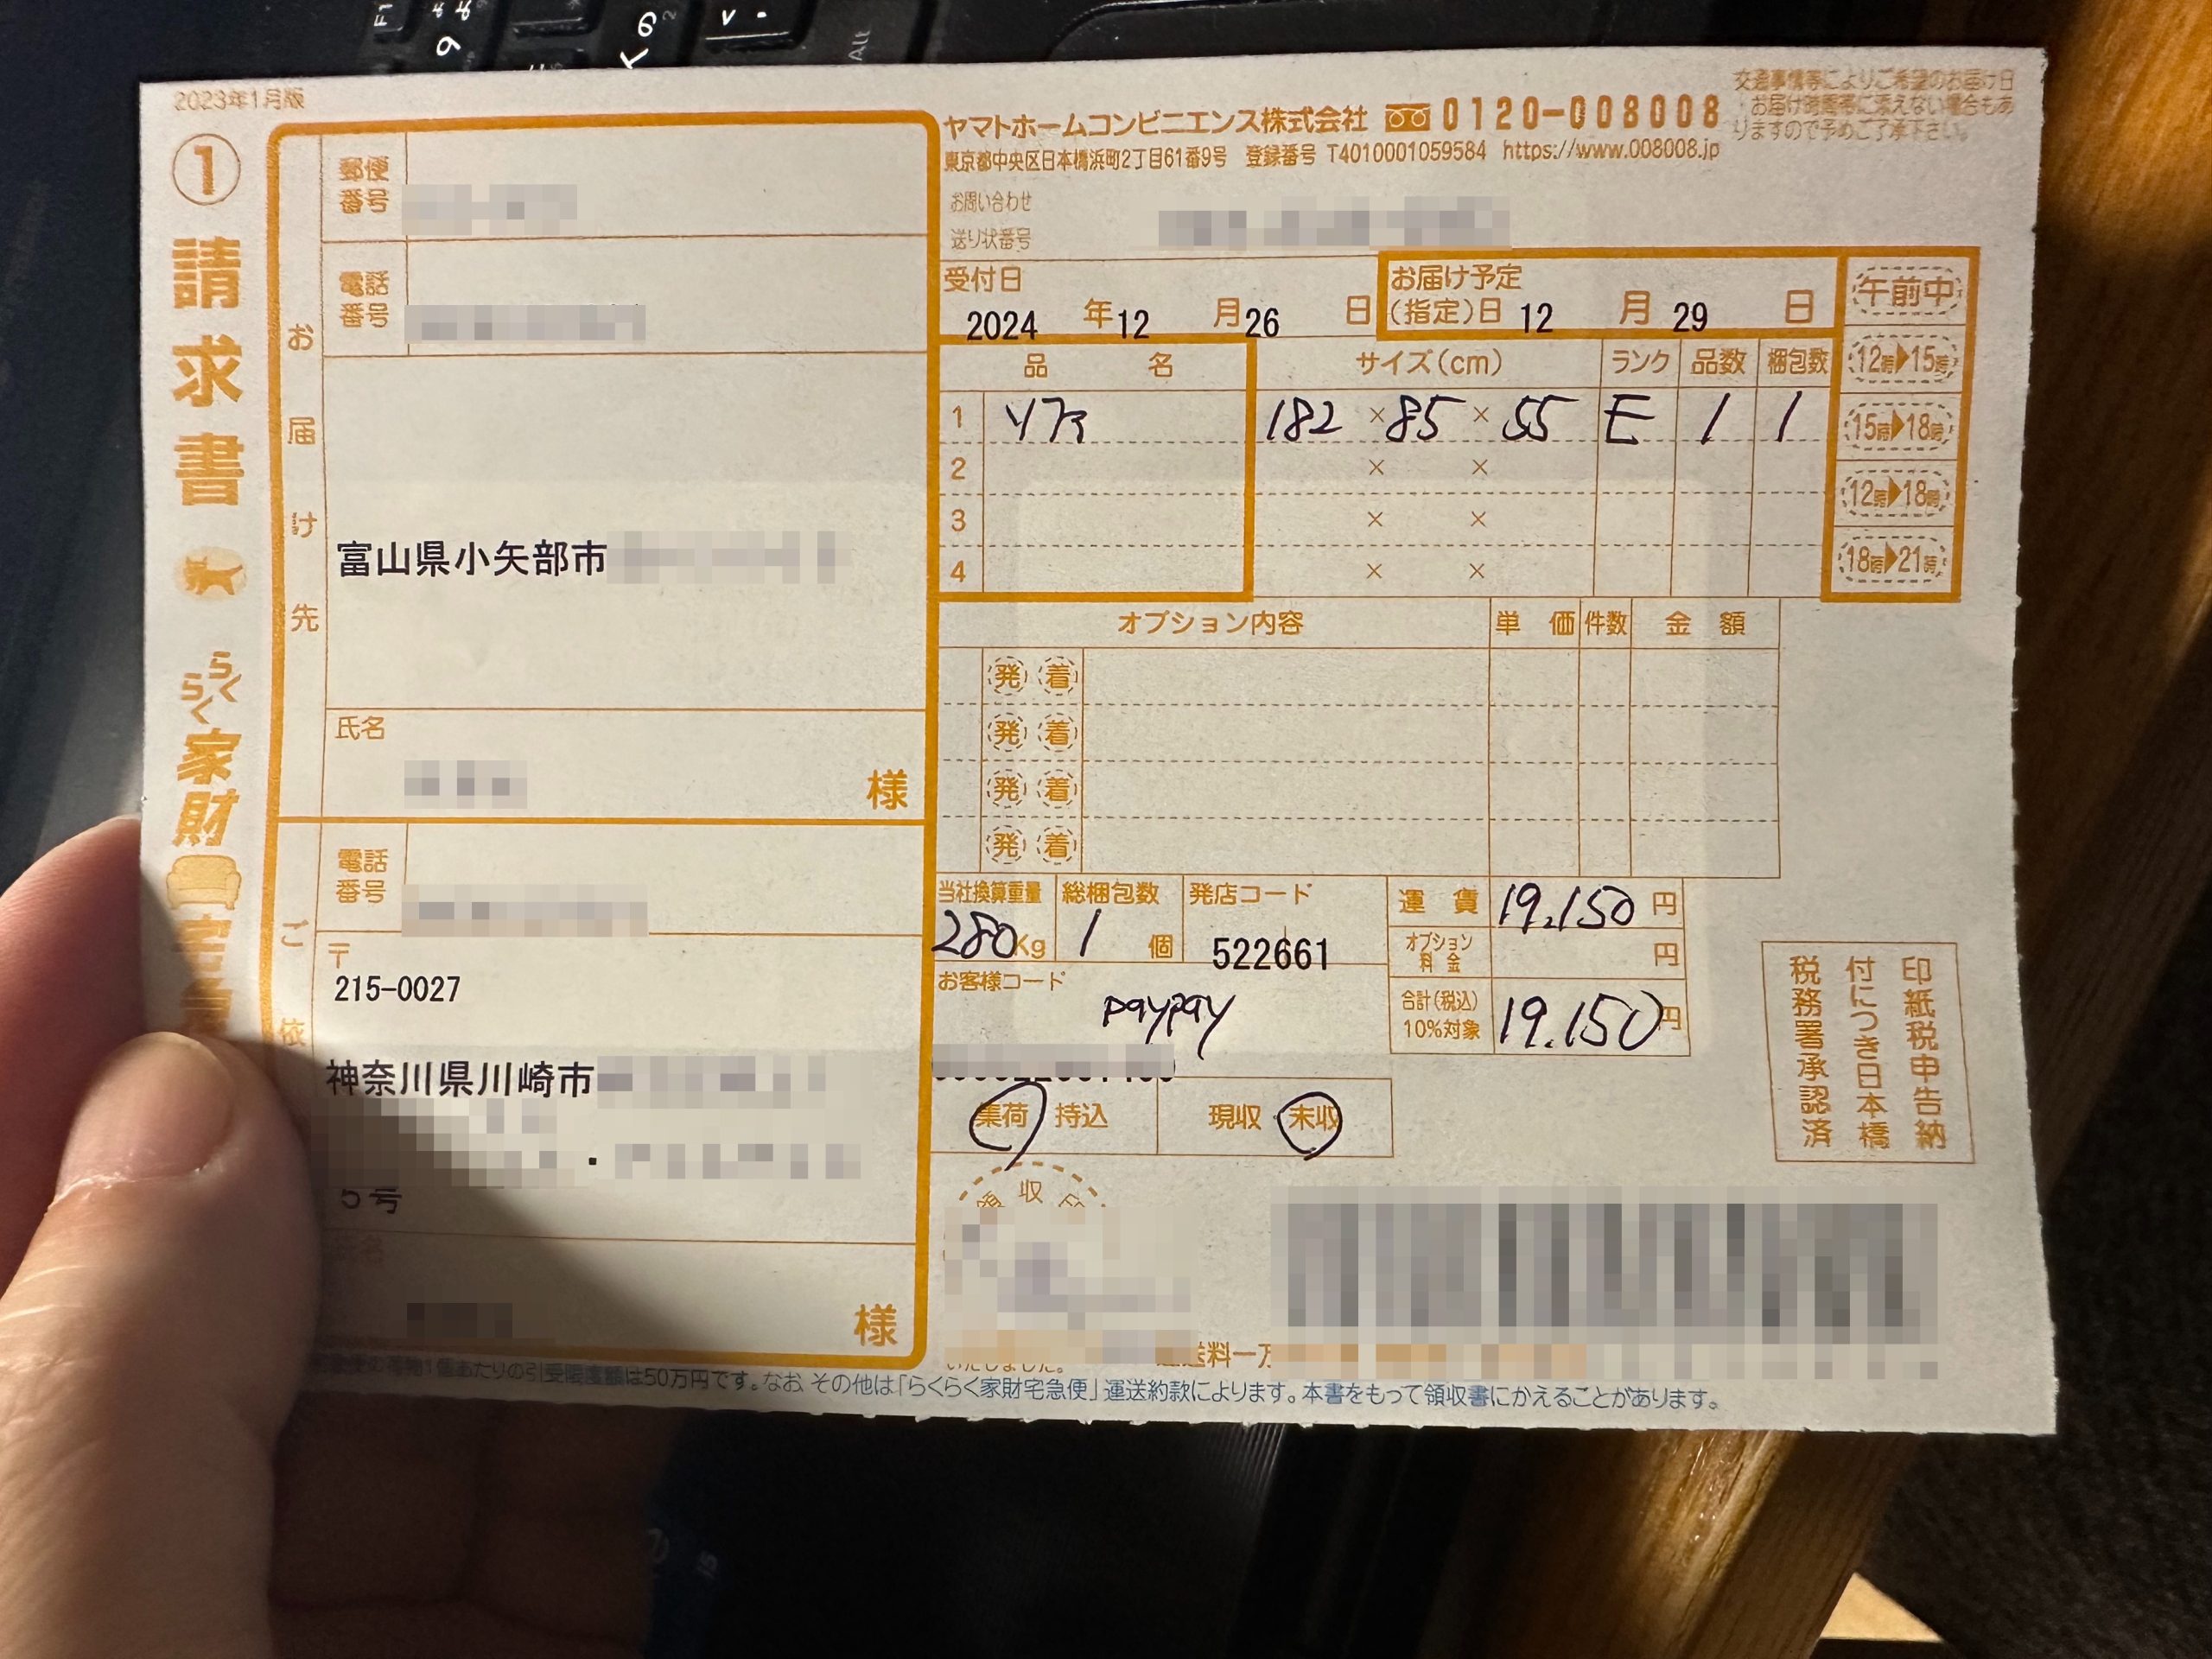 2023年1月版
① 請求書
らくらく家財
お届け先
郵便番号
電話番号
富山県小矢部市
氏名
様
ご依
電話番号
〒
215-0027
神奈川県川崎市
5号
様
ヤマトホームコンビニエンス株式会社 0120-008008
東京都中央区日本橋浜町2丁目61番9号 登録番号 T4010001059584 https://www.008008.jp
交通事情等によりご希望のお届け日
・お届け時間帯に添えない場合もあ
りますので予めご了承下さい。
お問い合わせ
送り状番号
受付日
2024 年 12 月 26 日
お届け予定
(指定)日 12 月 29 日
午前中
12時▶15時
15時▶18時
12時▶18時
18時▶21時
品名 サイズ(cm) ランク 品数 梱包数
1 ソファ 182 × 85 × 55 E 1 1
2 × ×
3 × ×
4 × ×
オプション内容 単価 件数 金額
発 着
発 着
発 着
発 着
当社換算重量 総梱包数 発店コード
280Kg 1 個 522661
運賃 19.150 円
オプション料金 円
合計(税込)
10%対象 19.150 円
お客様コード
paypay
集荷 持込 現収 未収
印紙税申告納
付につき日本橋
税務署承認済
いたしました。
送料一万
1個あたりの引受限度額は50万円です。なお、その他は「らくらく家財宅急便」運送約款によります。本書をもって領収書にかえることがあります。